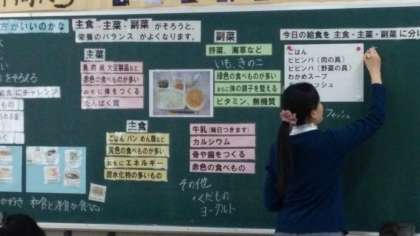 方がいいのかな
主食、主菜・副菜 がそろうと、
栄養のバランス がよくなります。
主菜
魚 肉 卵 大豆製品など
赤色の食べものが多い
おもに 体をつくる
たんぱく質
副菜
野菜、海草など
いも、きのこ
緑色の食べものが多い
おもに 体の調子を整える
ビタミン、無機質
主食
ごはん パン めん類など
黄色の食べものが多い
おもに エネルギー
炭水化物の多いもの
牛乳（毎日つきます）
カルシウム
骨や歯をつくる
赤色の食べもの
その他
・くだもの
ヨーグルト
今日の給食を 主食・主菜・副菜 に分け
ごはん
ビビンバ（肉の具）
ビビンバ（野菜の具）
わかめスープ
和食と洋食が